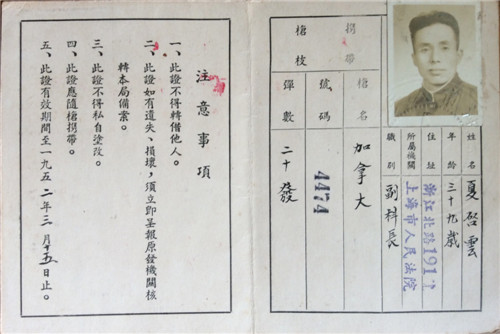 姓名 夏啓雲
年齡 三十九歲
住址 浙江北路191
所屬機關 上海市人民法院
職別 副科長
携帶槍枝
槍名 加拿大
號碼 4474
彈數 二十發
注意事項
一、此證不得轉借他人。
二、此證如有遺失、損壞，須立即呈報原發機關核
轉本局備案。
三、此證不得私自塗改。
四、此證應隨槍携帶。
五、此證有效期間至一九五二年三月十五日止。